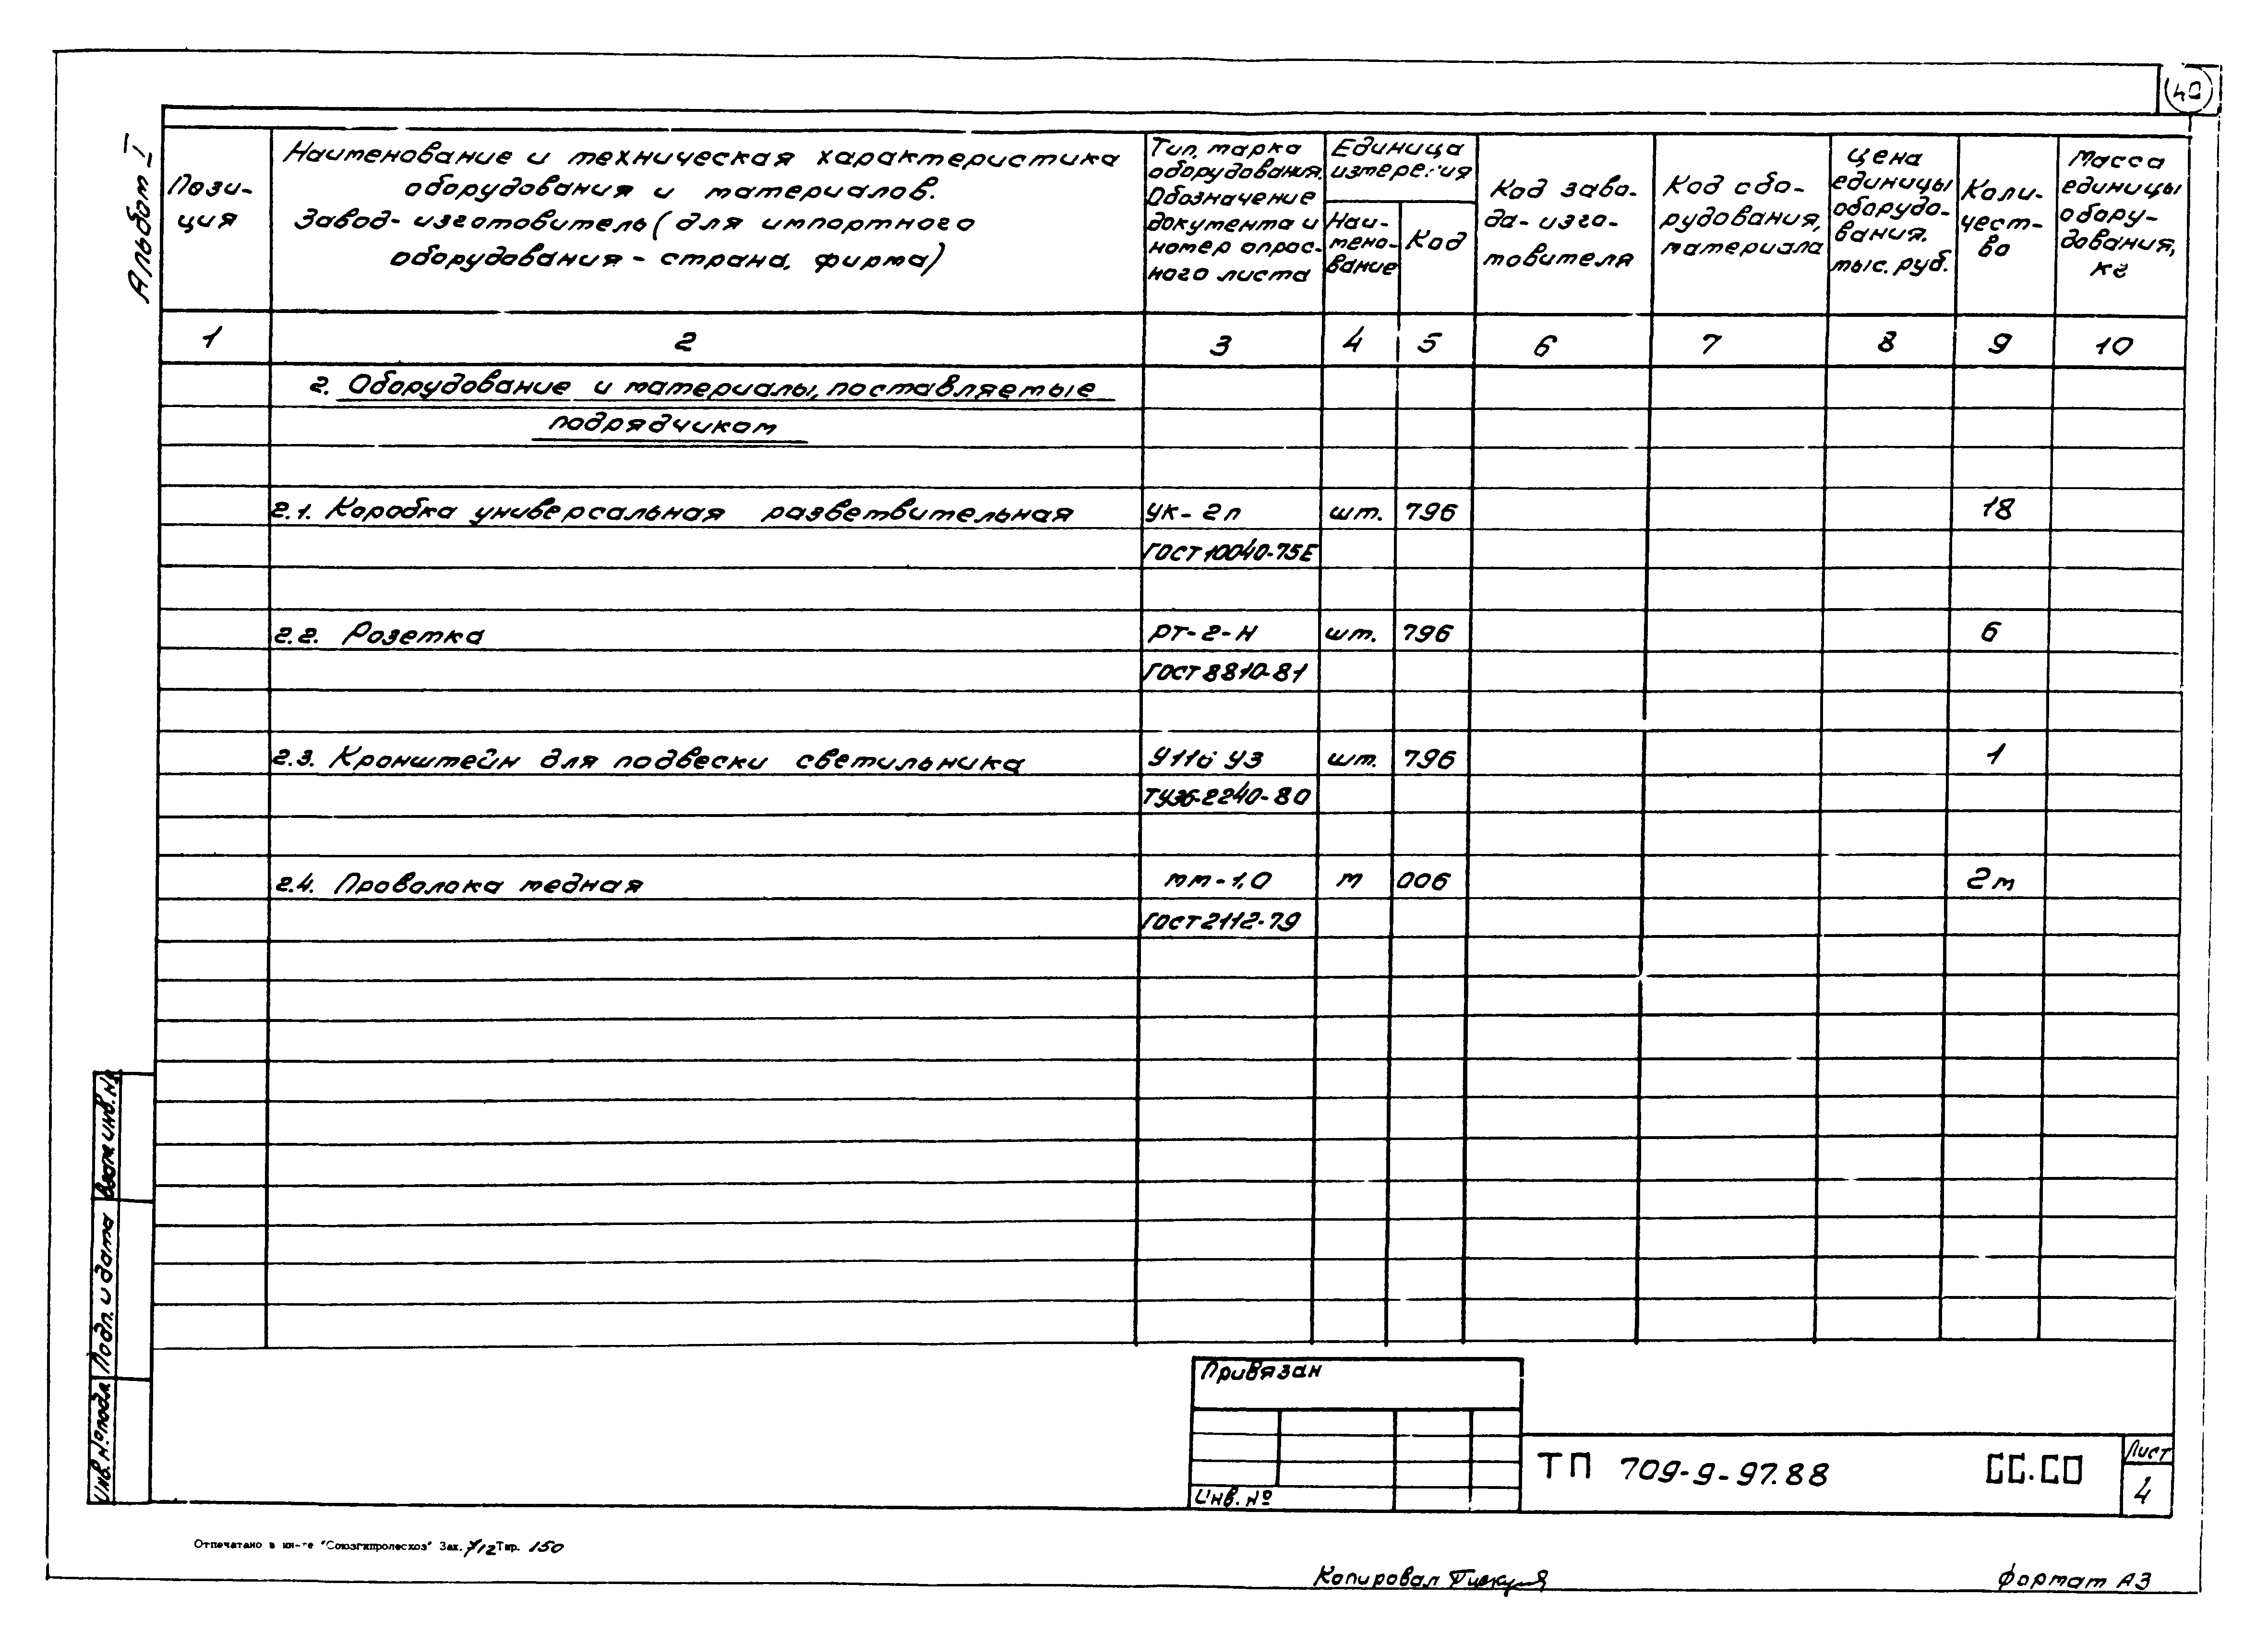 40
Альбом I
Пози-
ция
Наименование и техническая характеристика
оборудования и материалов.
Завод-изготовитель (для импортного
оборудования - страна, фирма)
Тип, марка
оборудования.
Обозначение
документа и
номер опрос-
ного листа
Единица
измерения
Наи-
мено-
вание
Код
Код заво-
да-изго-
товителя
Код обо-
рудования,
материала
Цена
единицы
оборудо-
вания.
тыс. руб.
Коли-
чест-
во
Масса
единицы
обору-
дования,
кг
1 2 3 4 5 6 7 8 9 10
2. Оборудование и материалы, поставляемые
подрядчиком
2.1. Коробка универсальная разветвительная УК-2п шт. 796 18
ГОСТ 10040-75Е
2.2. Розетка РТ-2-Н шт. 796 6
ГОСТ 8810-81
2.3. Кронштейн для подвески светильника У116 У3 шт. 796 1
ТУ36-2240-80
2.4. Проволока медная мм-1,0 м 006 2м
ГОСТ 2112-79
Взам. инв. №
Подп. и дата
Инв. № подл.
Привязан
Инв. №
ТП 709-9-97.88 СС.СО
Лист
4
Отпечатано в ин-те "Союзгипролесхоз" Зак. 712 Тир. 150
Копировал
Формат А3